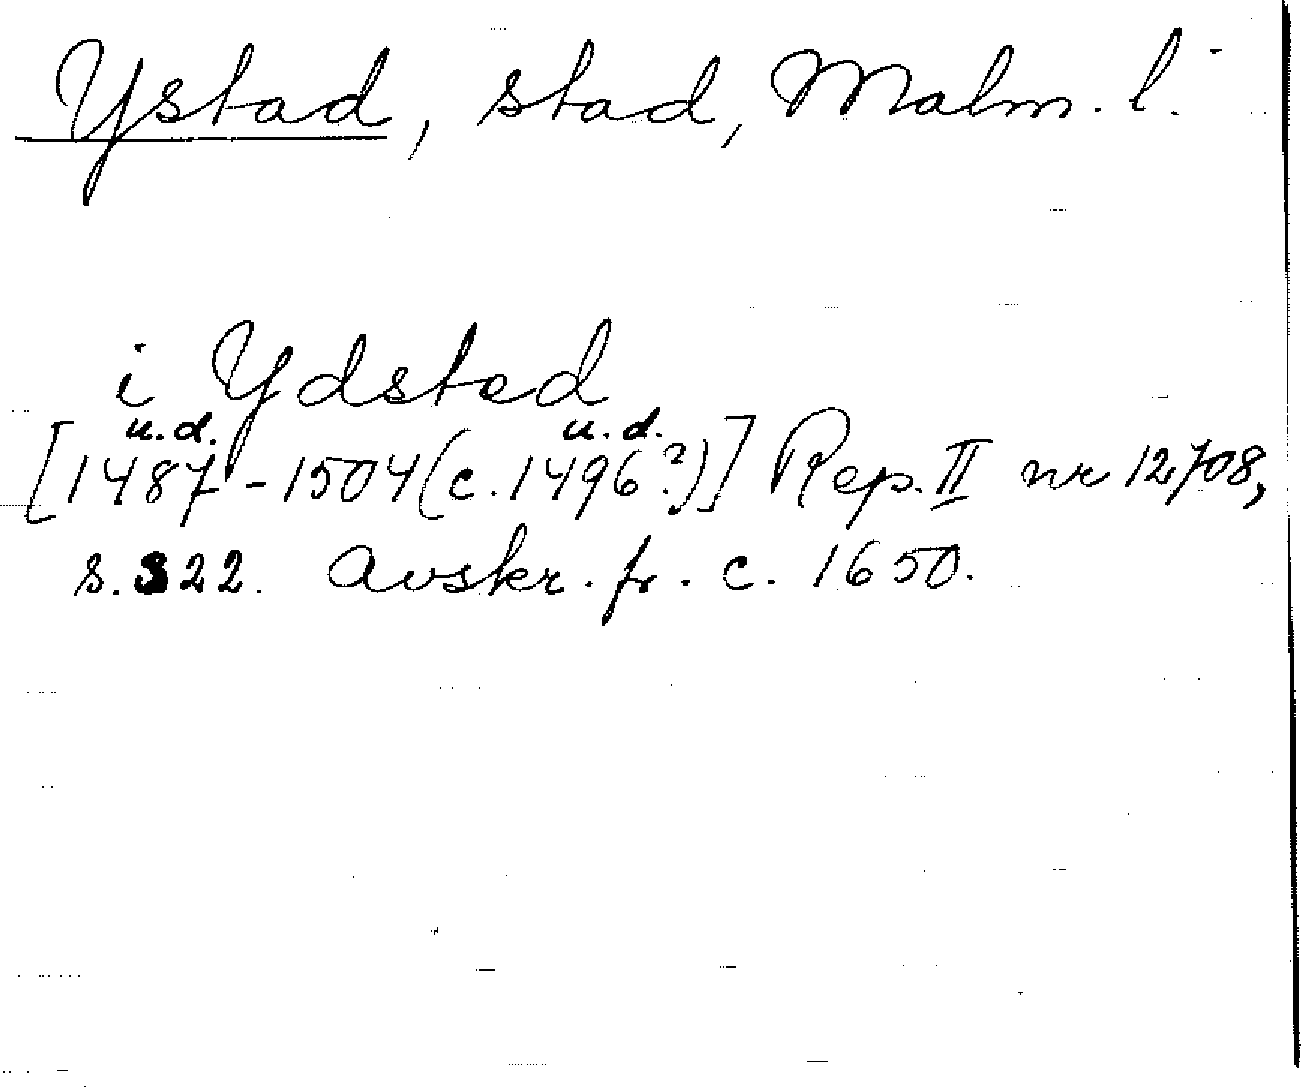 Ystad, stad, Malm. l.
i Ydsted
u.d. u.d.
[1487-1504(c.1496?)] Rep. II nr 12708,
s. 322. Avskr. fr. c. 1650.